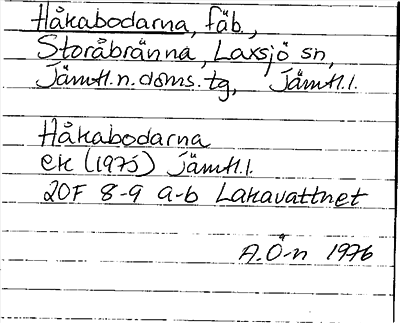 Håkabodarna, fäb.,
Storåbränna, Laxsjö sn,
Jämtl.n.doms.tg, Jämtl.l.
Håkabodarna
ek (1975) Jämtl.l.
20F 8-9 a-b Lakavattnet
A.Ö-n 1976